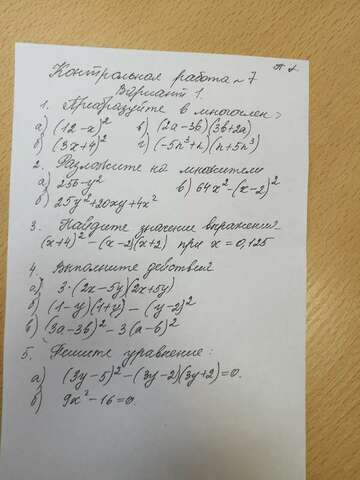 П 2
Контрольная работа №7
Вариант 1.
1. Преобразуйте в многочлен
а) (12-x)² б) (2a-3b)(3b+2a)
в) (3x+4)² г) (-5n³+n)(n+5n³)
2. Разложите на множители
а) 256-y² в) 64x²-(x-2)²
б) 25y²+20xy+4x²
3. Найдите значение выражения
(x+4)²-(x-2)(x+2) при x=0,125
4. Выполните действия
а) 3·(2x-5y)(2x+5y)
б) (1-y)(1+y)-(y-2)²
в) (3a-3b)²-3(a-b)²
5. Решите уравнение:
а) (3y-5)²-(3y-2)(3y+2)=0.
б) 9x²-16=0.